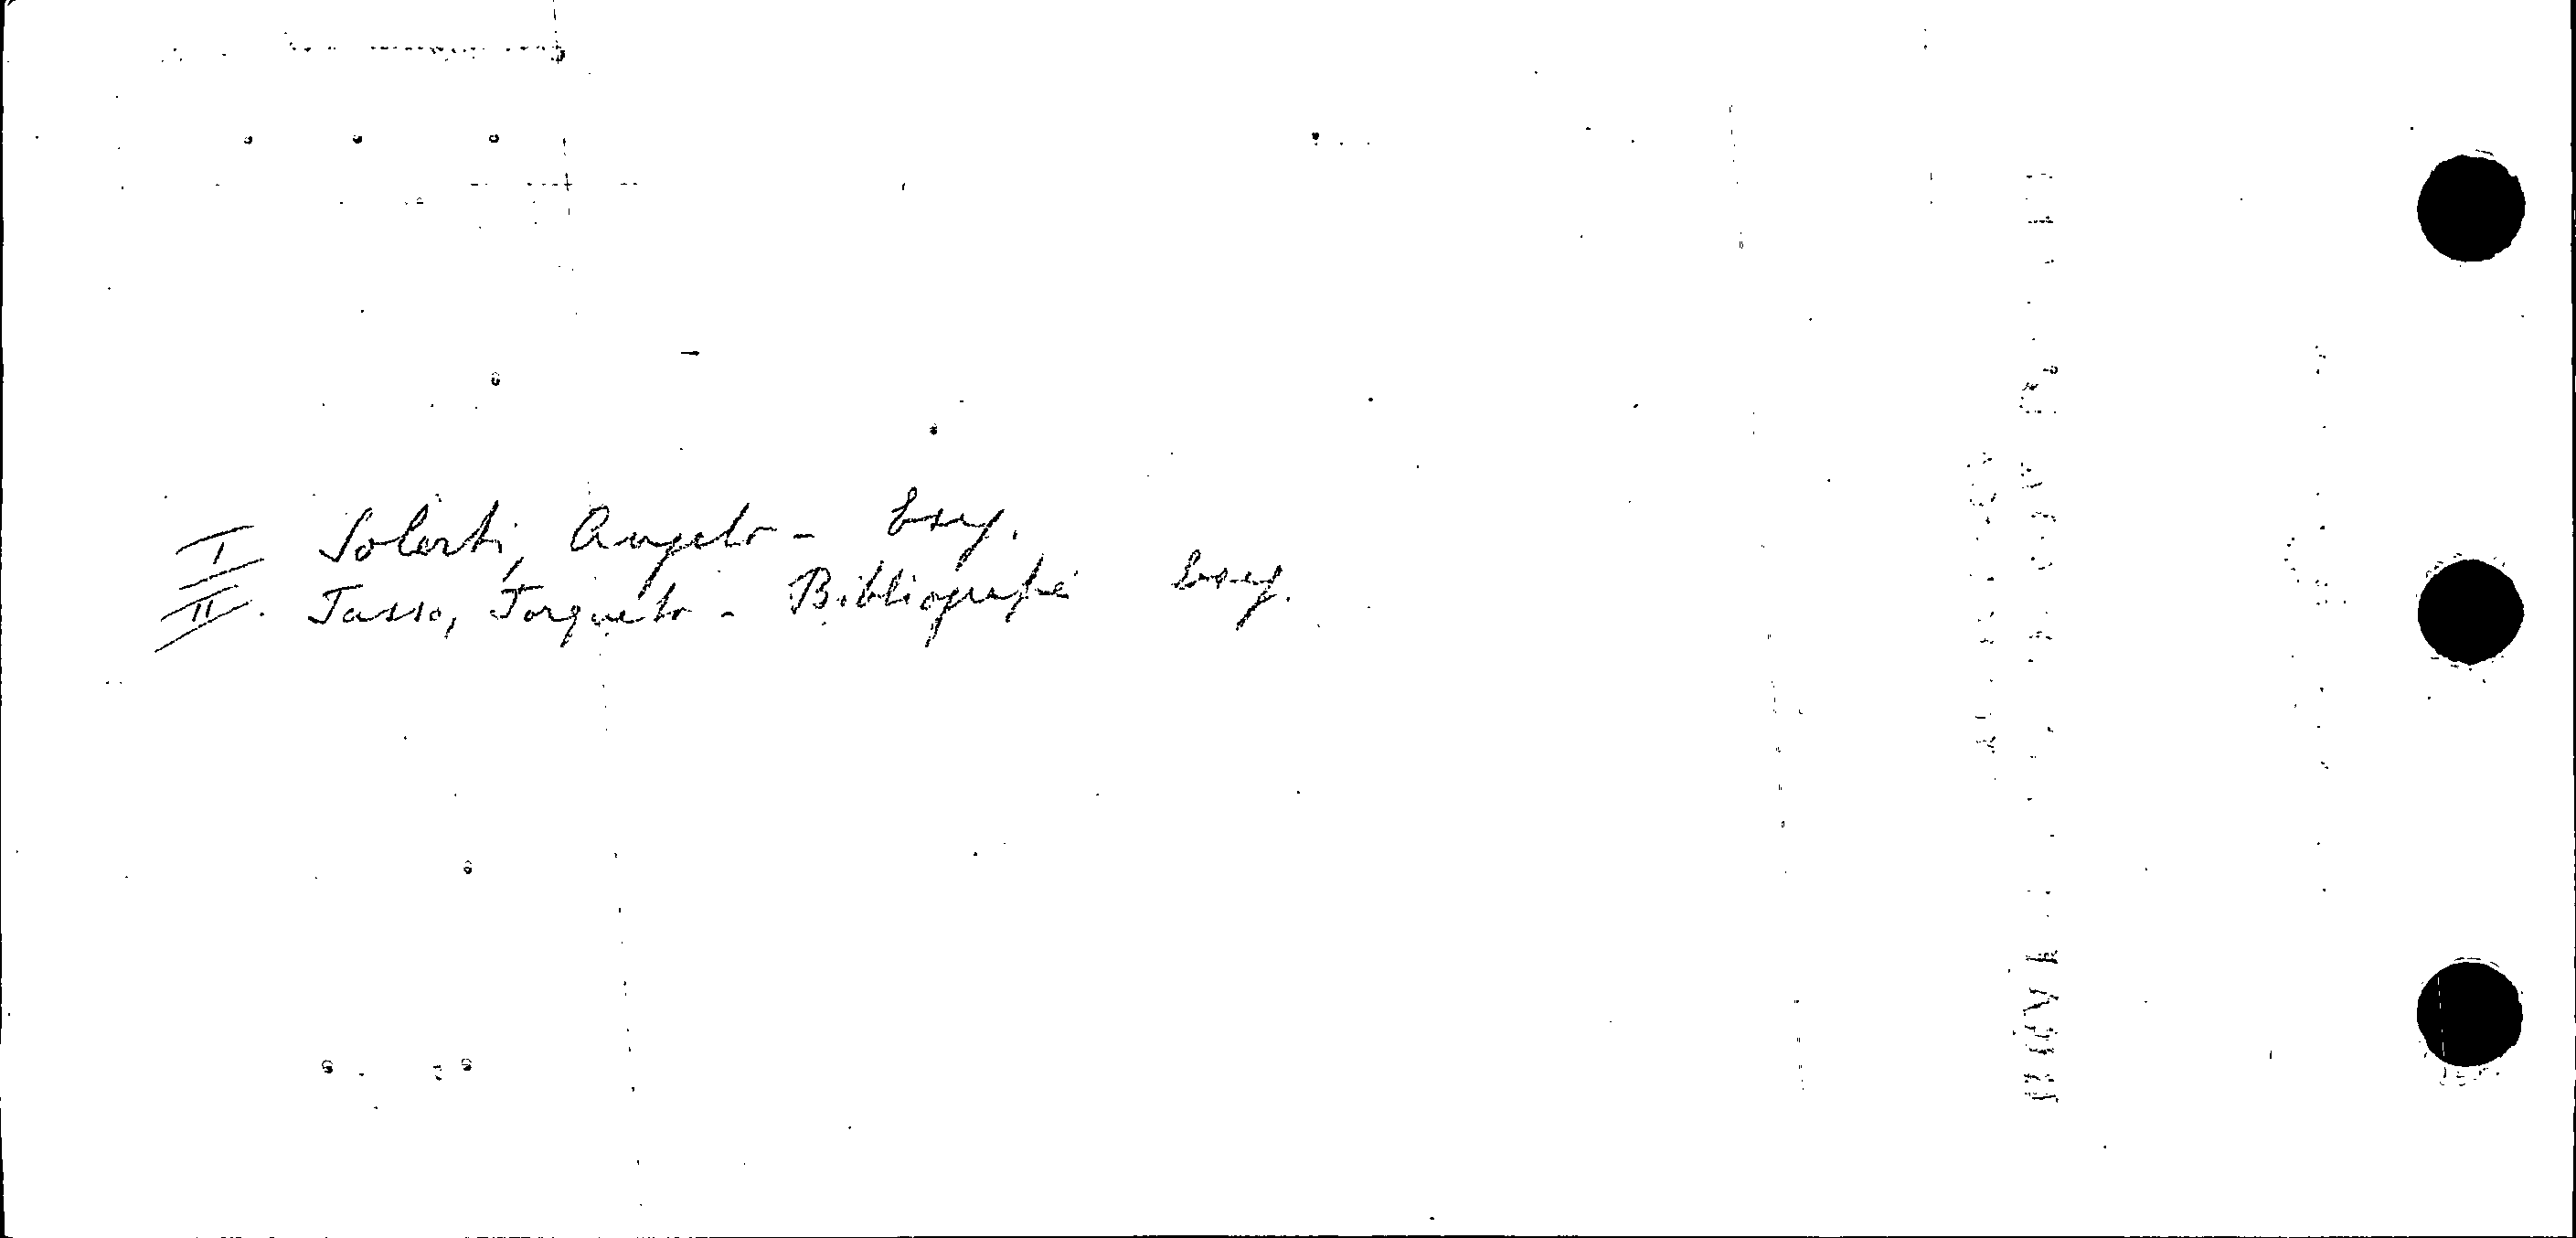 I Solerti, Angelo - bsy.
II. Tasso, Torquato - Bibliografie bsy.